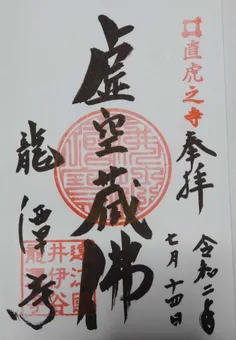 直虎之寺
奉拝
令和二年
七月十四日
虚空蔵佛
遠江國
井伊谷
龍潭寺
龍潭寺